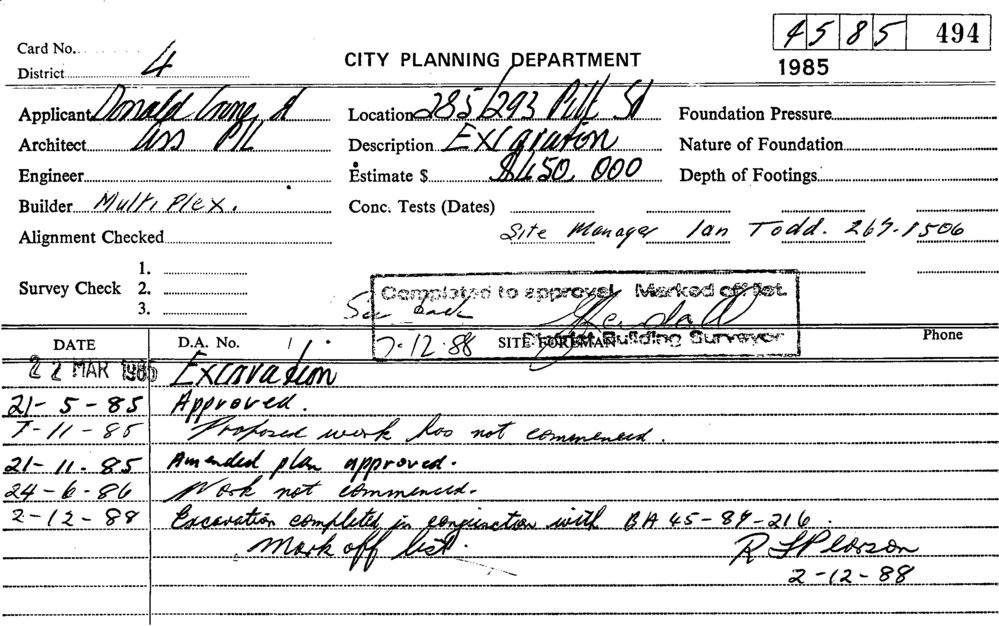 4585 494
Card No.
CITY PLANNING DEPARTMENT
District 4
1985
Applicant Donald Crone &
Location 285/293 Pitt St
Foundation Pressure
Architect Ass P/L
Description Excavation
Nature of Foundation
Engineer
Estimate $ $450,000
Depth of Footings
Builder Multiplex.
Conc. Tests (Dates)
Alignment Checked
Site Manager Ian Todd. 267-1506
Survey Check 1.
2.
3.
Completed to approval. Marked off list.
See back
District Building Surveyor
7-12-88
DATE D.A. No. SITE FOREMAN Phone
22 MAR 1985 Excavation
21-5-85 Approved.
7-11-85 Proposed work has not commenced.
21-11-85 Amended plan approved.
24-6-86 Work not commenced.
2-12-88 Excavation completed in conjunction with BA 45-87-216.
Mark off list.
R Pearson
2-12-88